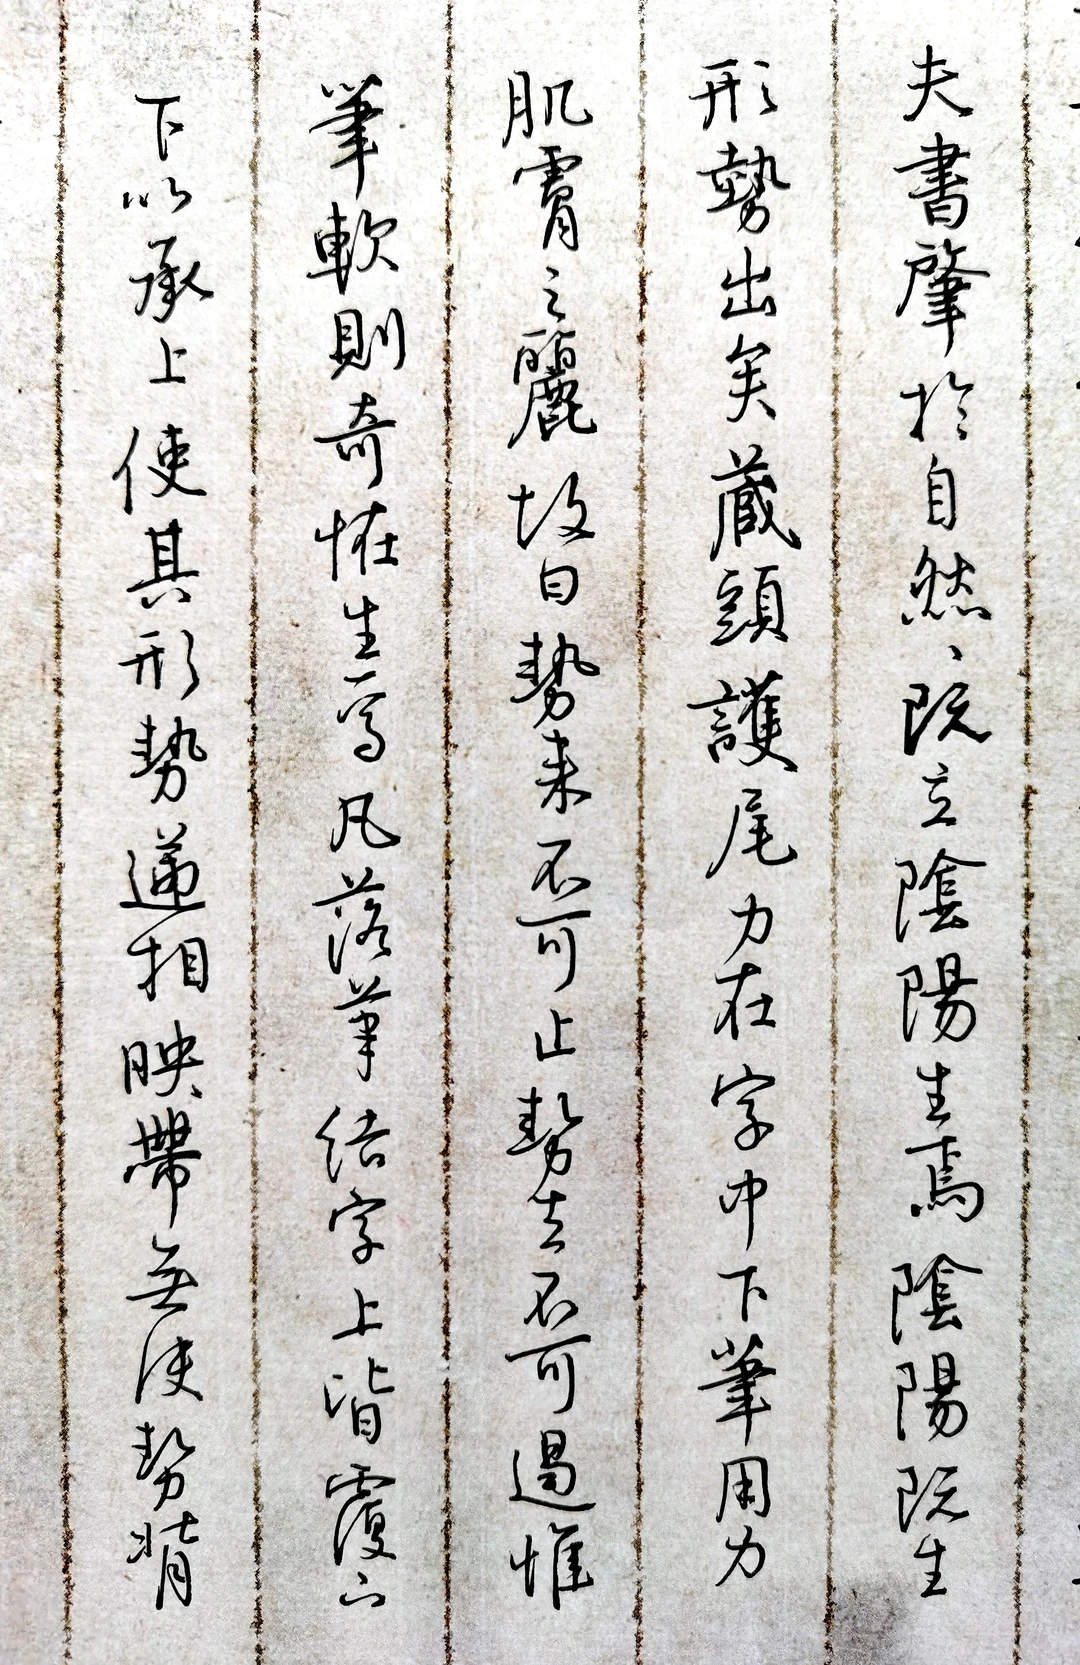 夫書肇於自然、既立陰陽生焉陰陽既生
形勢出矣藏頭護尾力在字中下筆用力
肌膚之麗故曰勢来不可止勢去不可遏惟
筆軟則奇恠生焉凡落筆结字上皆覆下
下以承上使其形勢遞相映帶無使勢背